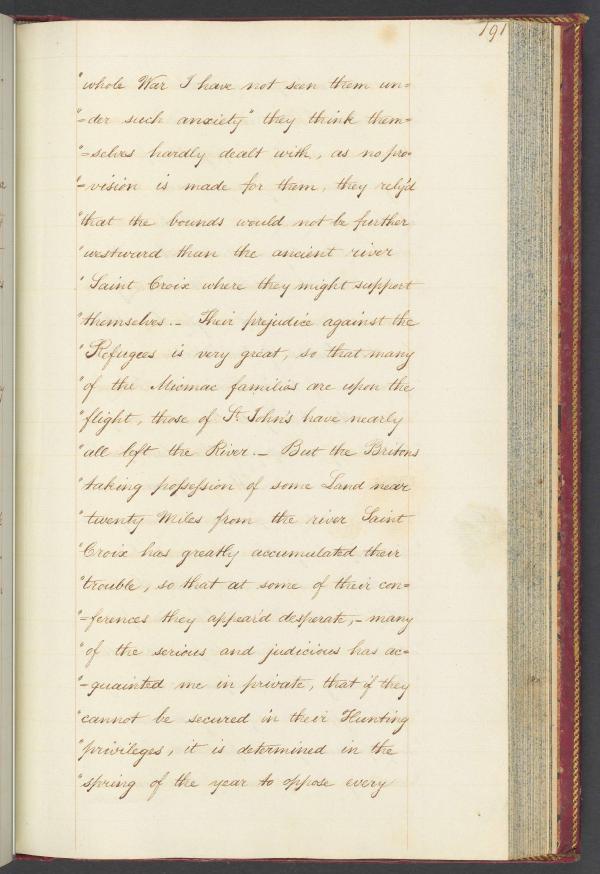 191
"whole War I have not seen them un=
"=der such anxiety" they think them=
"=selves hardly dealt with, as no pro=
"=vision is made for them, they rely'd
"that the bounds would not be further
"westward than the ancient river
"Saint Croix where they might support
"themselves._ Their prejudice against the
"Refugees is very great, so that many
"of the Micmac families are upon the
"flight, those of St. John's have nearly
"all left the River._ But the Britons
"taking possession of some Land near
"twenty Miles from the river Saint
"Croix has greatly accumulated their
"trouble, so that at some of their con=
"=ferences they appear'd desperate,- many
"of the serious and judicious has ac=
"=quainted me in private, that if they
"cannot be secured in their Hunting
"privileges, it is determined in the
"spring of the year to oppose every